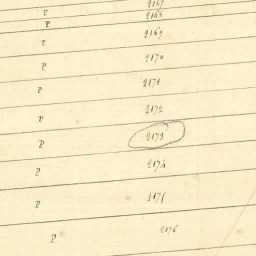 P 2167
P 2168
P 2169
P 2170
P 2171
P 2172
P 2173
P 2174
P 2175
P 2176